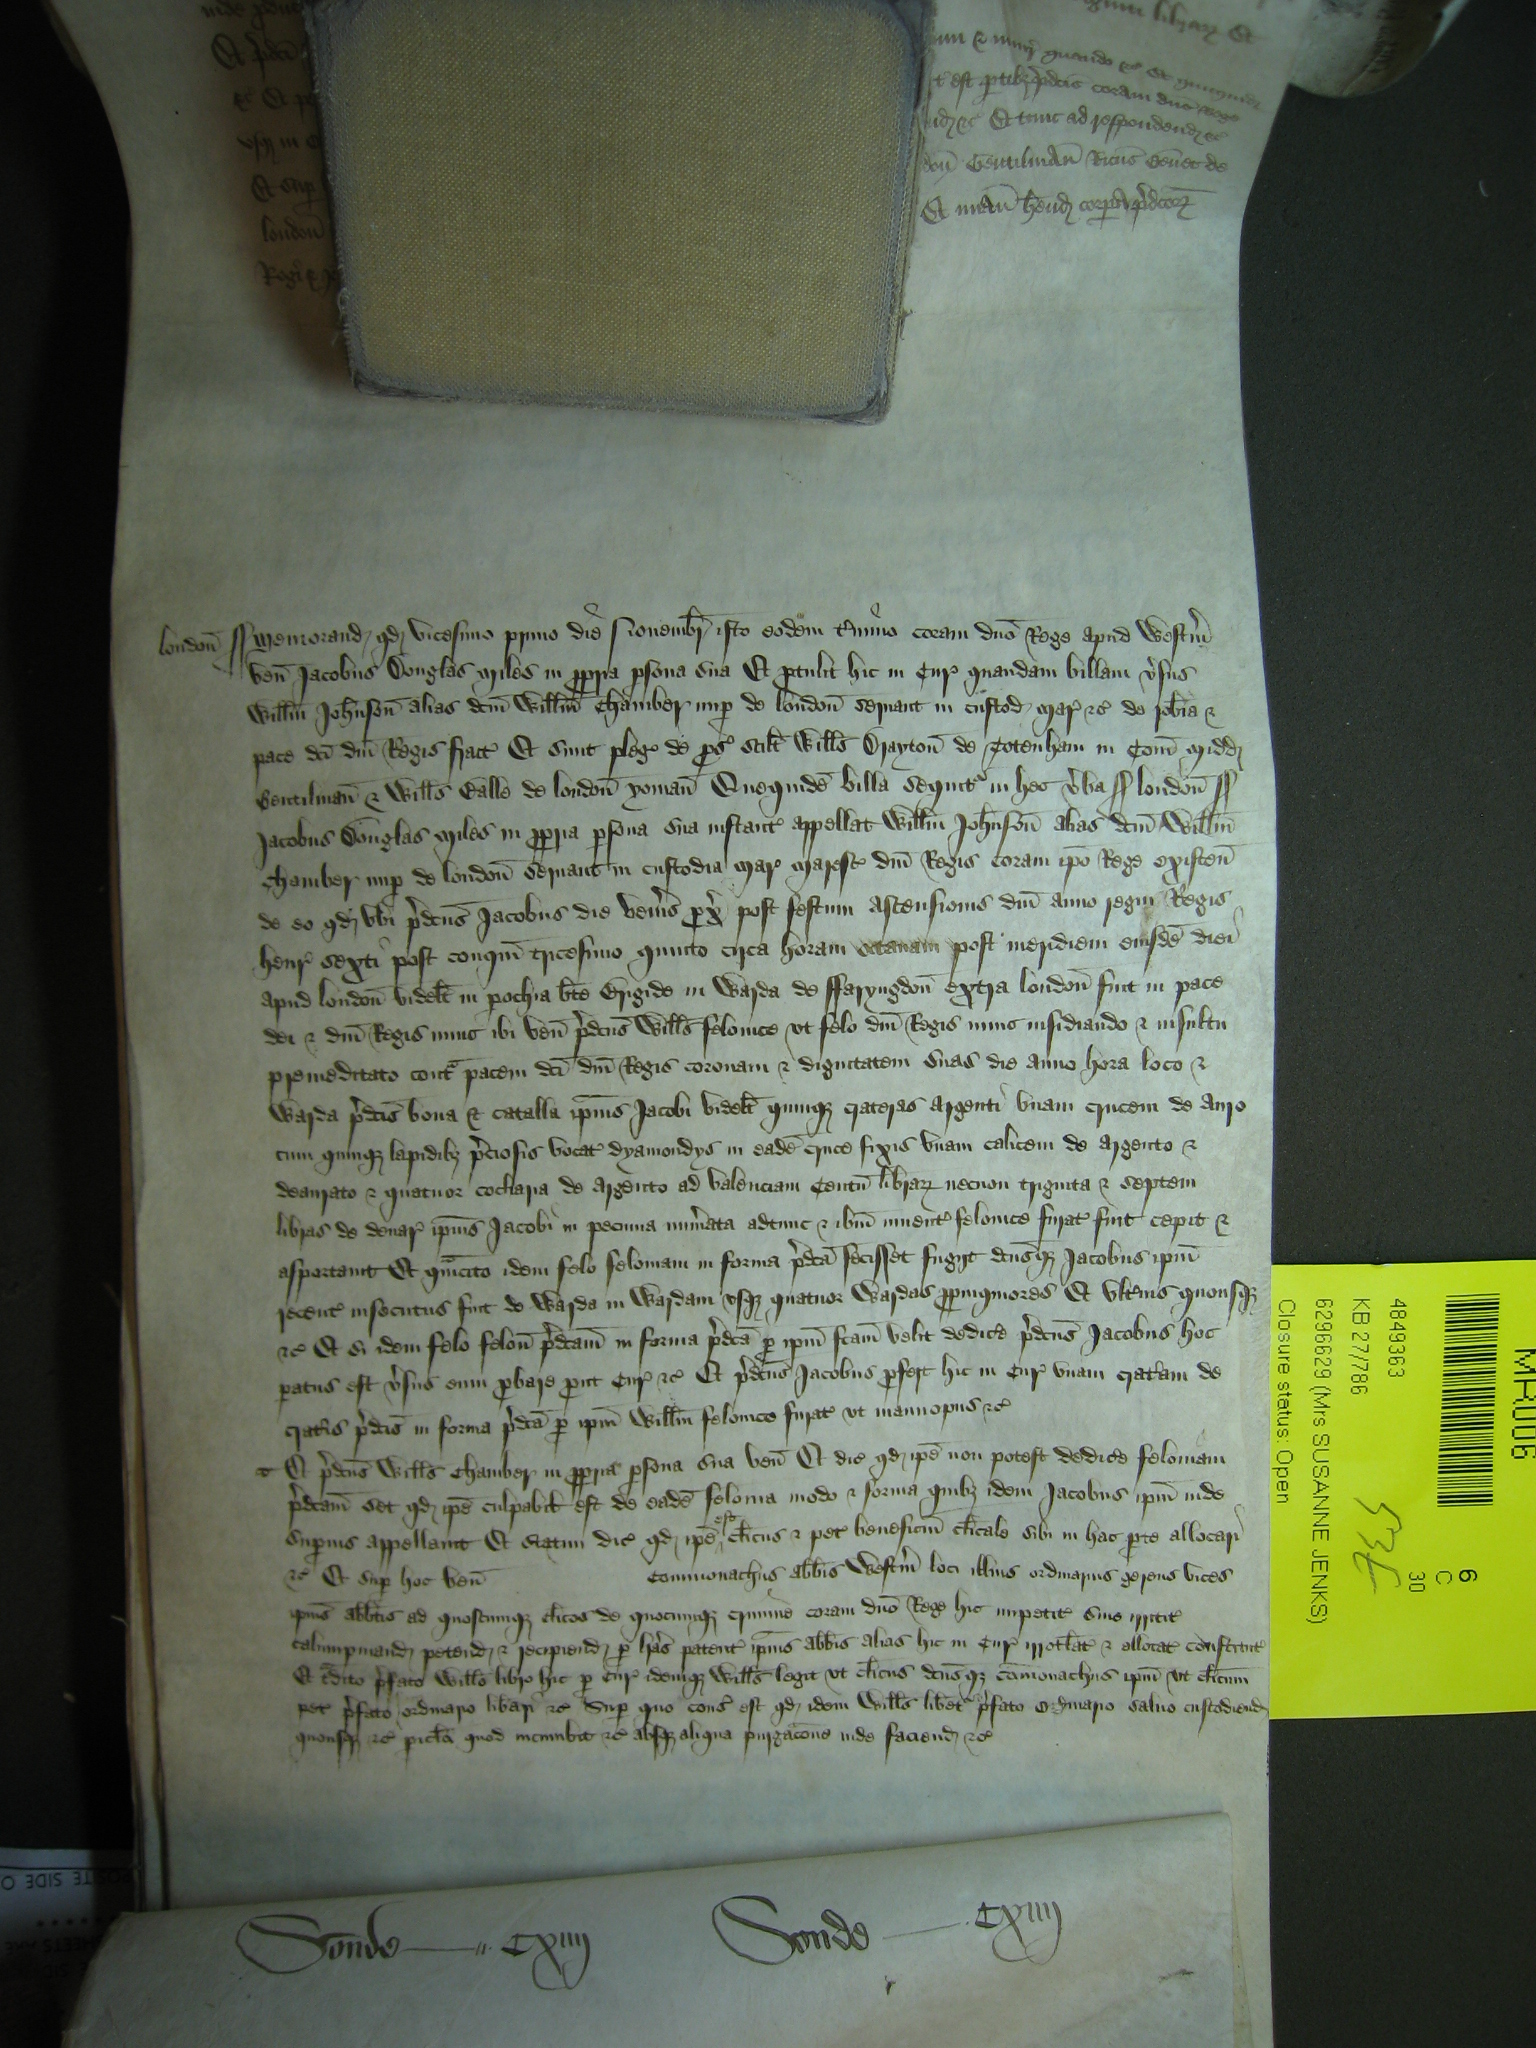 londoñ ss Memorand qd vicesimo primo die Novembr isto eodem Termino coram dno Rege apud Westm
veñ Jacobus Douglas Miles in ppria psona sua Et ptulit hic in Cur quandam billam vsus
Willm Johnson alias dcm Willm Chamber nup de london servant in custod mar &c de robia &
pace dci dni Regis fract Et sunt pleg de ps scilt Wills Drayton de Totenham in Com Midd
Gentilman & Wills Calle de london yoman Quequidem billa sequit in hec vba ss london ss
Jacobus Douglas Miles in ppria psona sua instant appellat Willm Johnson alias dcm Willm
Chamber nup de london servant in custodia mar maresc dni Regis coram ipo Rege existen
de eo qd ubi pdcus Jacobus die venis px post festum Ascensionis dni anno regni Regis
henr sexti post conqm tricesimo quinto circa horam octavam post meridiem eiusde diei
apud london videlt in pochia bte Brigide in Warda de ffaryngdon extra london fuit in pace
dei & dni Regis nunc ibi ven pdcus Wills felonice ut felo dni Regis nunc insidiando & insultu
premeditato cont pacem dci dni Regis coronam & dignitatem suas die anno hora loco &
Warda pdcis bona & catalla ipius Jacobi videlt quinq crateras argenti unam crucem de auro
cum quinq lapidibz pciosis vocat dyamondys in eade cruce fixis unam calicem de argento &
deaurato & quatuor coclaria de argento ad valenciam Centu librar necnon triginta & septem
libras de denar ipius Jacobi in pecunia numata adtunc & ibm invent felonice furat fuit cepit &
asportavit Et qmcito idem felo feloniam in forma pdca fecisset fugijt dcusq Jacobus ipm
recent insecutus fuit de Warda in Wardam usq quatuor Wardas ppinquiores Et ultius quousq
&c Et si idem felo felon pdcam in forma pdca p ipm fcam velit dedice pdcus Jacobus hoc
patus est vsus eum pbare put Cur &c Et pdcus Jacobus pfert hic in Cur unam cratam de
cratis pdcis in forma pdca p ipm Willm felonice furat ut manuopus &c
Et pdcus Wills Chamber in ppria psona sua ven Et dic qd ipe non potest dedice feloniam
pdcam set qd ipe culpabil est de eade felonia modo & forma quibz idem Jacobus ipm inde
supius appellavit Et statim dic qd ipe est clicus & pet beneficiu clicale sibi in hac pte allocari
&c Et sup hoc ven Commonachus abbis Westm loci illius ordinarius gerens vices
ipius abbtis ad quoscumq clicos de quocumq crimine coram dno Rege hic impetit sive irritit
calumpniand petend & recipiend p lras patent ipius abbis alias hic in Cur irrotlat & allocat constitut
Et tdito pfato Willo libro hic p Cur idemq Wills legit ut clicus dcusq Comonachus ipm ut clicum
pet pfato ordinario libari &c Sup quo cons est qd idem Wills libet pfato Ordinario salvo custodiend
quousq &c picto quod incumbit &c absq aliqua purgacone inde faciend &c
Sonde — CXIIII
Sonde — CXIIII
MR006
6
C
30
4849363
KB 27/786
6296629 (Mrs SUSANNE JENKS)
Closure status: Open